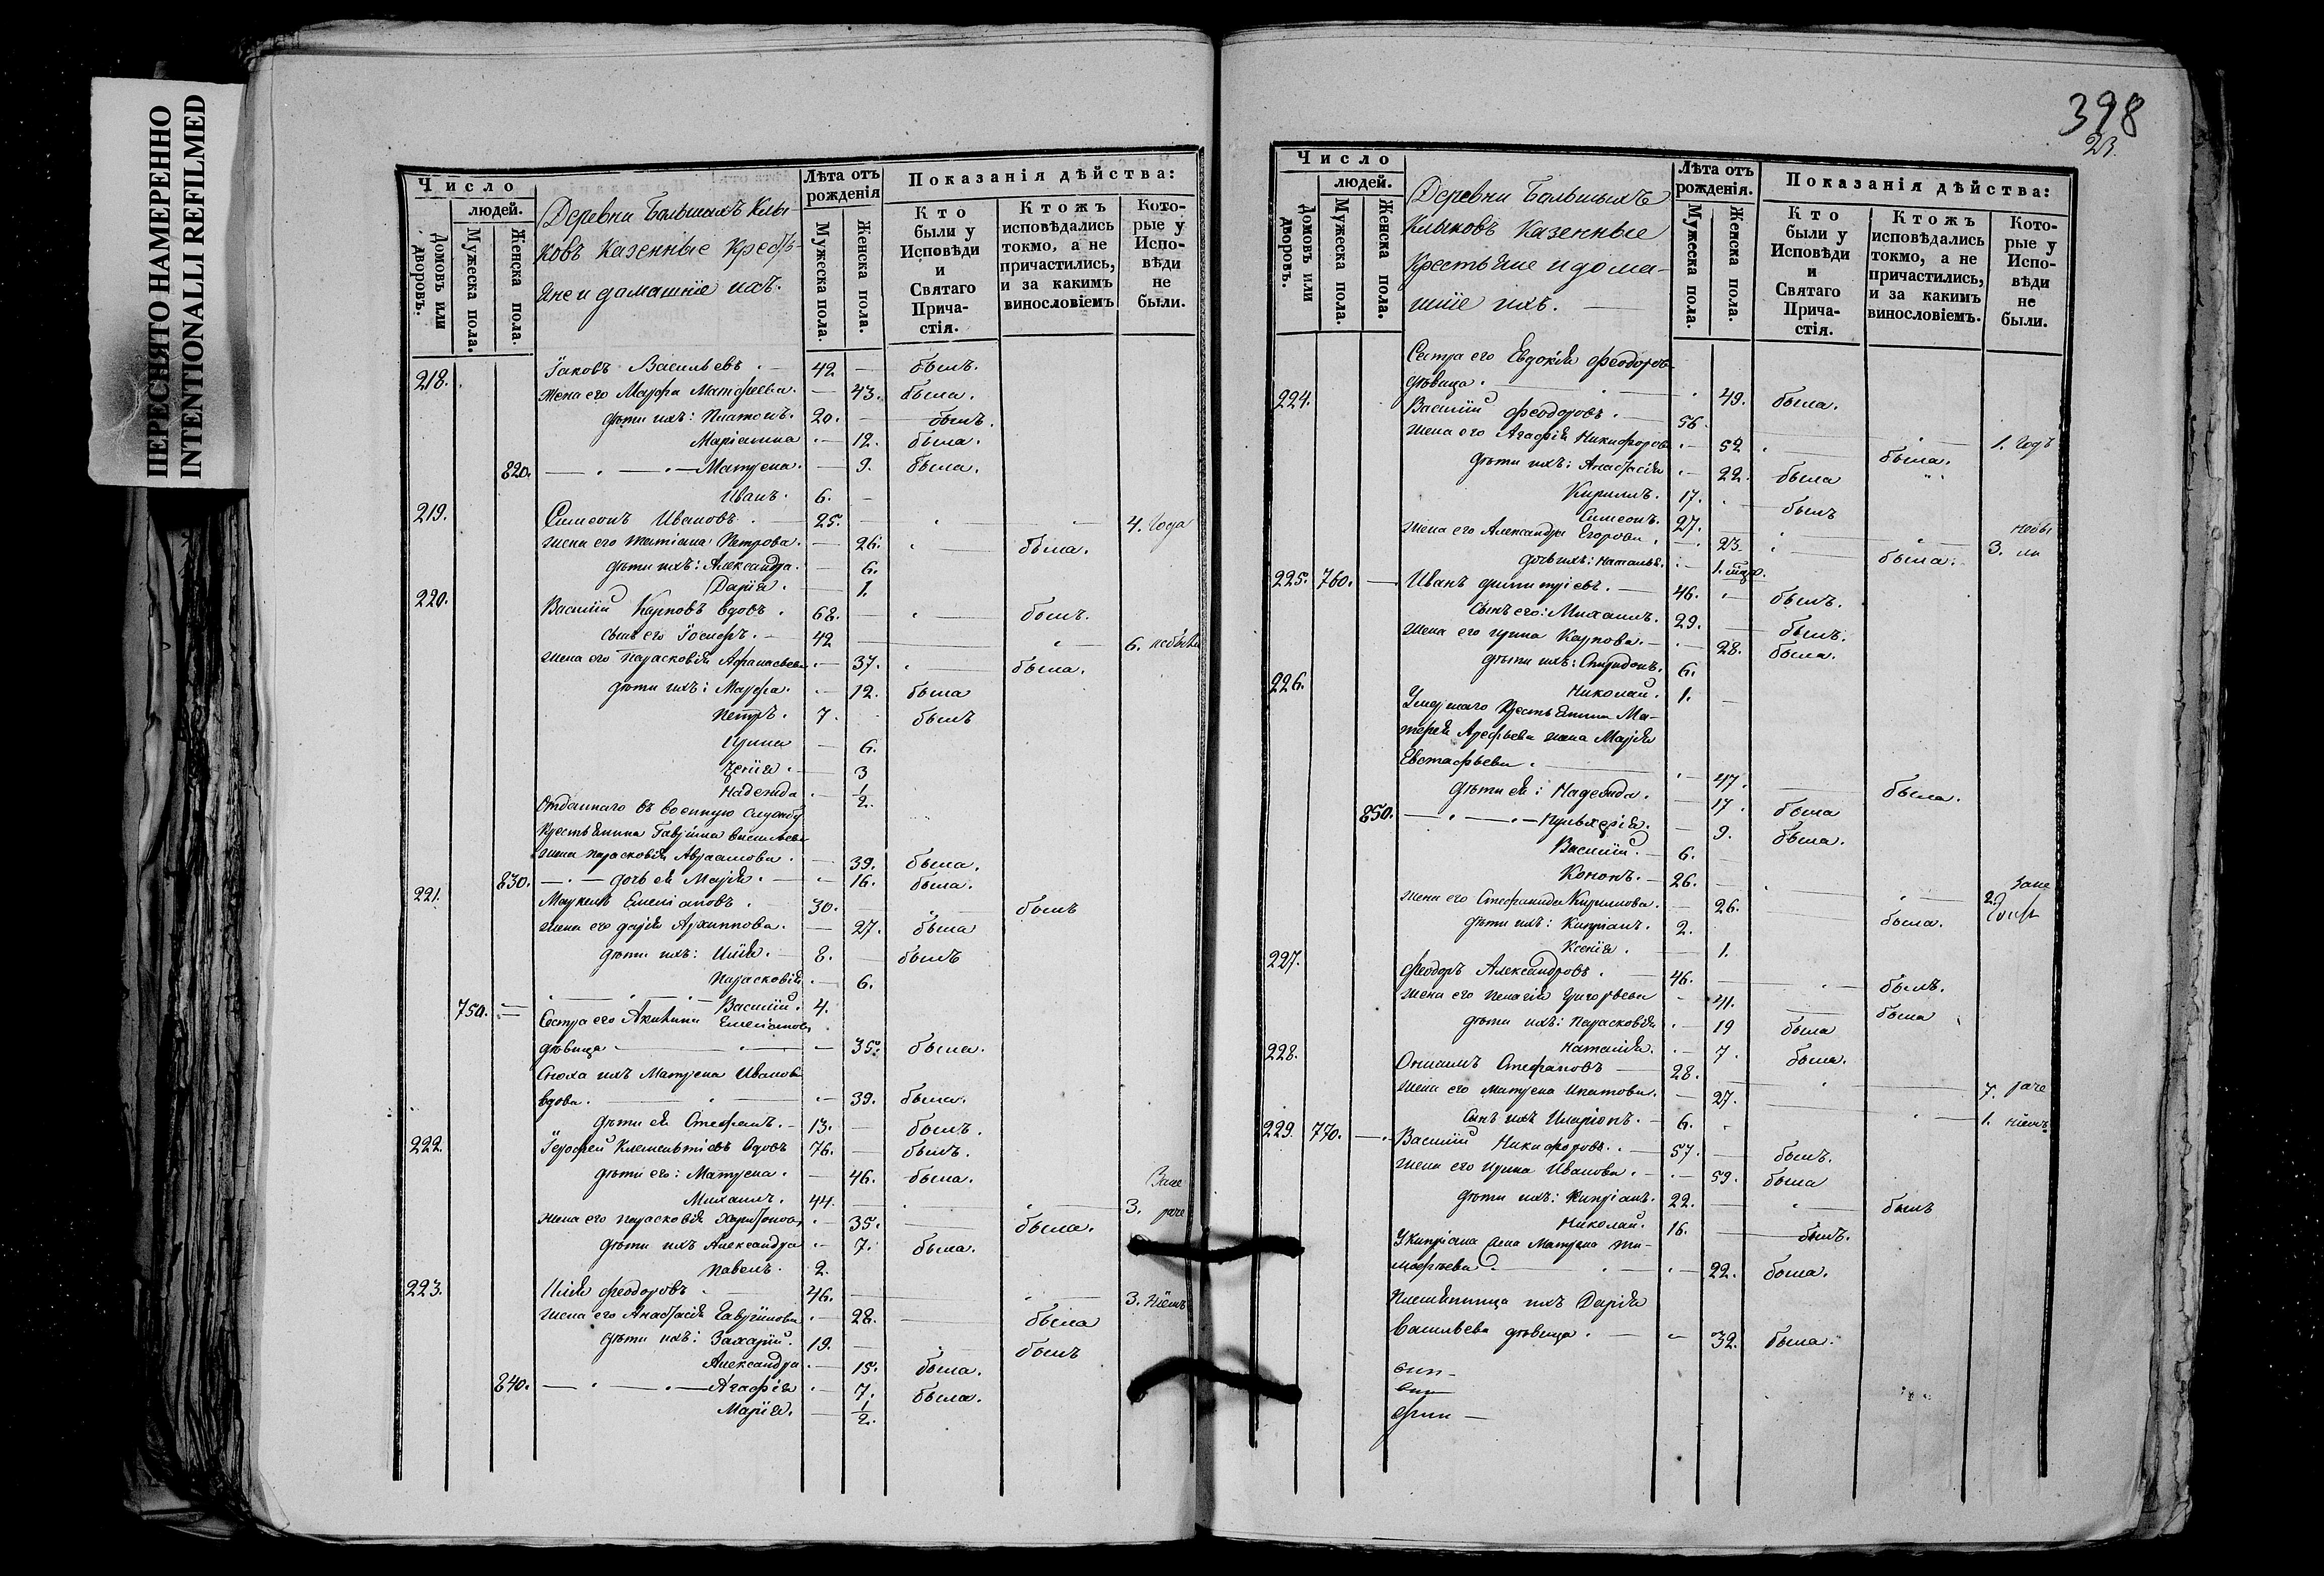 ПЕРЕСНЯТО НАМЕРЕННО
INTENTIONALLI REFILMED
Число
людей.
Домовъ или дворовъ.
Мужеска пола.
Женска пола.
Деревни Большихъ Клы
ковъ Казенные Кресть-
яне и домашніе ихъ.
Лѣта отъ рожденія
Мужеска пола.
Женска пола.
Показанія дѣйства:
Кто были у Исповѣди и Святаго Прича-стія.
Ктожъ исповѣдались токмо, а не причастились, и за какимъ винословіемъ
Кото-рые у Испо-вѣди не были.
218. Іаковъ Васильевъ. 42 — былъ.
Жена его Марфа Матфеева. — 43. была.
дѣти ихъ: Платонъ. 20. — былъ.
Маріамна — 12. была.
820. Матрена. — 9. была.
Иванъ. 6. —
219. Симеонъ Ивановъ. 25. — 4. года
жена его Татіана Петрова. — 26. была.
дѣти ихъ: Александра. — 6.
Дарія. — 1.
220. Василій Карповъ вдовъ. 68. — былъ.
сынъ его Іосифъ. — 42 — 6. небылъ
жена его Парасковія Афанасьева — 37. была.
дѣти ихъ: Марфа. — 12. была
Петръ. 7. былъ
Ирина — 6.
Ксенія. — 3
Надежда — 1/2.
Отданнаго въ военную службу
крестьянина Гавріила Васильева
жена Парасковія Авраамова. — 39. была.
830. — дочь ея Марія. — 16. была.
221. Маркелъ Емеліановъ. 30. — былъ
жена его Дарія Архиппова. — 27. была
дѣти ихъ: Илія. 8. — былъ
Параскевія — 6.
750. — Василій. 4.
Сестра его Акилина Емеліанова
дѣвица — 35. была.
Сноха ихъ Матрена Иванова
вдова. — 39. была.
дѣти ея Стефанъ. 13. — былъ.
222. Іерофей Клементіевъ вдовъ 76. — былъ.
дѣти его: Матрена. — 46. была.
Михаилъ. 44. 3.
жена его Парасковія Харитонова — 35. была.
дѣти ихъ Александра — 7. была.
Павелъ. 2.
223. Илія Феодоровъ 46. — 3.
жена его Анастасія Гавріилова — 28. была
дѣти ихъ: Захарій. 19. — былъ
Александра — 15. была.
840. — Агафія — 7. была.
Марія. — 1/2.
398
23
Число
людей.
Домовъ или дворовъ.
Мужеска пола.
Женска пола.
Деревни Большихъ
Клыковъ Казенные
Крестьяне и дома-
шніе ихъ. —
Лѣта отъ рожденія.
Мужеска пола.
Женска пола.
Показанія дѣйства:
Кто были у Исповѣди и Святаго Прича-стія.
Ктожъ исповѣдались токмо, а не причастились, и за какимъ винословіемъ.
Кото-рые у Испо-вѣди не были.
Сестра его Евдокія Феодорова
дѣвица. — 49. была.
224. Василій Феодоровъ. — 56. — 1. годъ
жена его Агафія Никифорова — 52 была.
дѣти ихъ: Анастасія — 22. была
Кириллъ. 17. былъ
Симеонъ. 27. — 3. небы ли
жена его Александра Егорова. — 23. была.
дочь ихъ: Наталья. — 1.
225. 760. — Иванъ Димитріевъ. — 46. былъ.
сынъ его: Михаилъ. 29. — былъ.
жена его Ирина Карпова. — 28. была.
дѣти ихъ: Спиридонъ. 6.
Николай. 1. —
226. Умершаго крестьянина Ма-
тфея Арефьева жена Марія
Евстафьева. — 47. была.
дѣти ея: Надежда. — 17. была
850. — Пульхерія. — 9. была.
Василій. — 6. —
Кононъ. — 26. — 2.
жена его Стефанида Кирилова. — 26. была.
дѣти ихъ: Кипріанъ. 2.
Ксенія. — 1.
227. Феодоръ Александровъ. 46. — былъ.
жена его Пелагія Григорьева — 41. была
дѣти ихъ: Парасковія — 19 была
Наталія. — 7. была.
228. Онисимъ Стефановъ — 28. — 7.
жена его Матрена Ипатова. — 27. 1.
сынъ ихъ Иларіонъ. — 6.
229. 770. — Василій Никифоровъ. — 57. — былъ.
жена его Ирина Иванова. — 59. была
дѣти ихъ: Кипріанъ. 22. — былъ
Николай. 16. — былъ.
У Кипріана жена Матрена Ти-
мофеева. — 22. была.
Племянница ихъ Дарія
Васильева дѣвица. — 32. была.